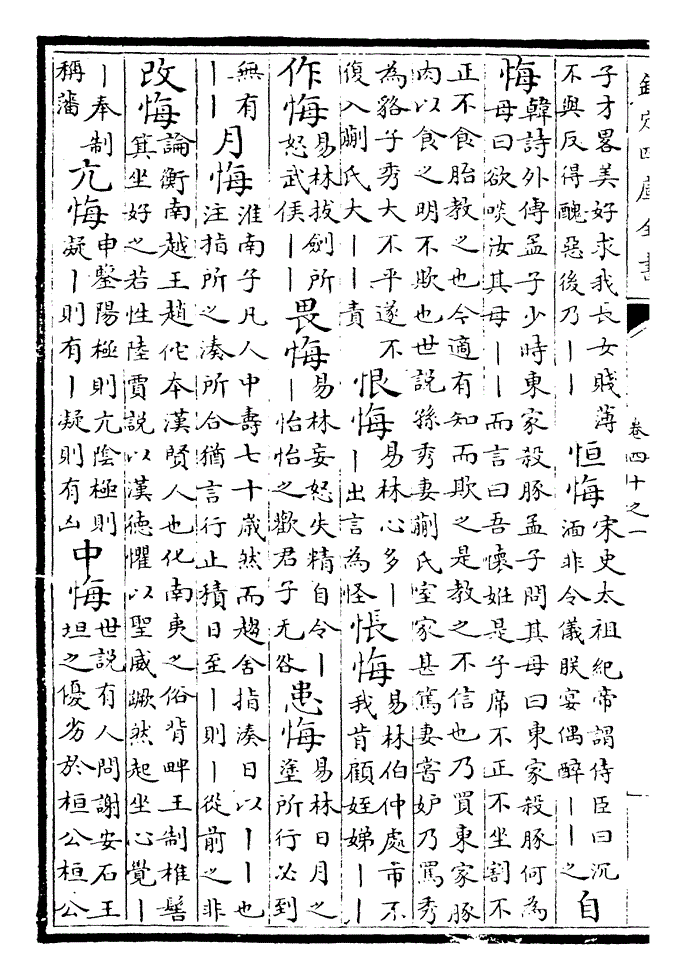 欽定四庫全書
卷四十之一
子才畧美好求我長女賤薄
不與反得醜惡後乃丨丨
恒悔
宋史太祖紀帝謂侍臣曰沉
湎非令儀朕宴偶醉丨丨之
自
悔
韓詩外傳孟子少時東家殺豚孟子問其母曰東家殺豚何為
母曰欲啖汝其母丨丨而言曰吾懷姙是子席不正不坐割不
正不食胎教之也今適有知而欺之是教之不信也乃買東家豚
肉以食之明不欺也世説孫秀妻蒯氏室家甚篤妻嘗妒乃罵秀
為貉子秀大不平遂不
復入蒯氏大丨丨責
恨悔
易林心多丨
丨出言為怪
悵悔
易林伯仲處市不
我肯顧姪娣丨丨
作悔
易林拔劍所
怒武侯丨丨
畏悔
易林妄怒失精自令丨
丨怡怡之歡君子无咎
患悔
易林日月之
塗所行必到
無有
丨丨
月悔
淮南子凡人中壽七十歲然而趨舍指湊日以丨丨也
注指所之湊所合猶言行止積日至丨則丨從前之非
改悔
論衡南越王趙佗本漢賢人也化南夷之俗背畔王制椎髻
箕坐好之若性陸賈説以漢德懼以聖威蹶然起坐心覺丨
丨奉制
稱藩
亢悔
申鑒陽極則亢陰極則
凝丨則有丨凝則有凶
中悔
世説有人問謝安石王
坦之優劣於桓公桓公